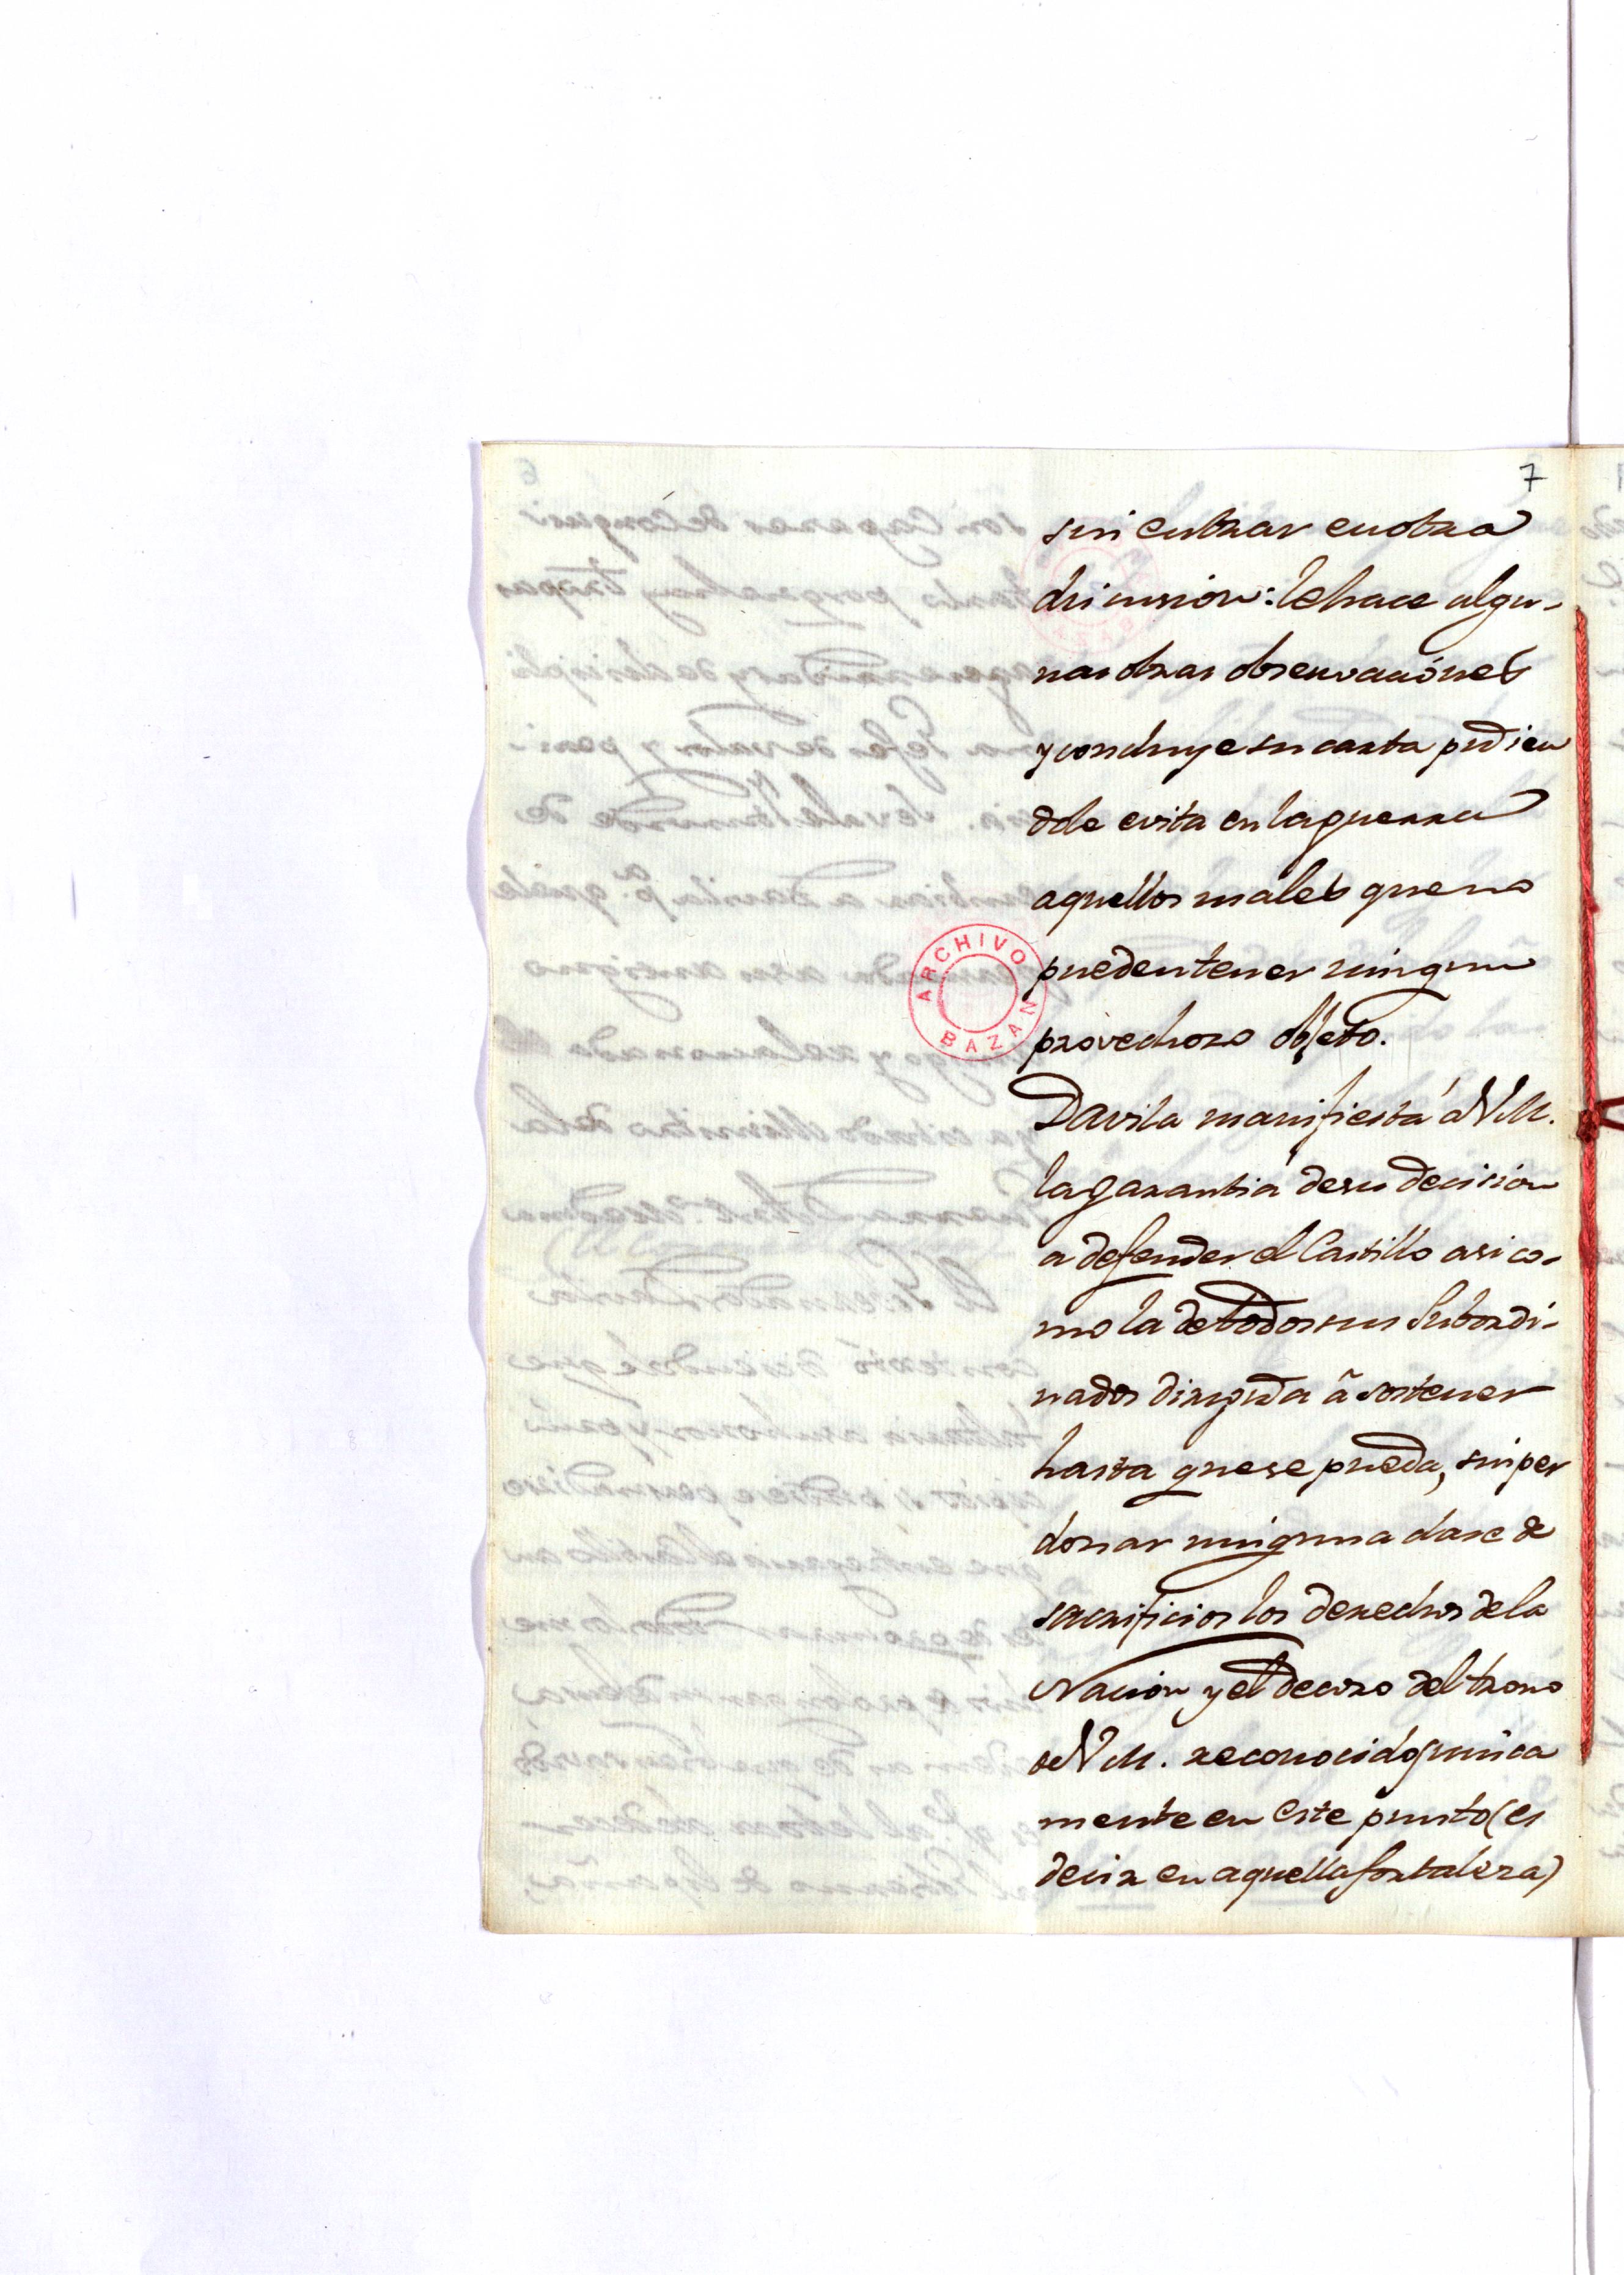 7
sin entrar en otra
discusion: le hace algu-
nas otras observaciónes
y concluye su carta pidien
dole evita en la guerra
aquellos males que no
pueden tener ningun
provechoso objeto.
Davila manifiesta á V.M.
la garantia de su decision
a defender el Castillo asi co-
mo la de todos sus Subordi-
nados dirigida â sostener
hasta que se pueda, sin per
donar ninguna clase de
sacrificios los derechos de la
Nacion y el decoro del trono
de V.M. reconocido unica
mente en este punto (es
decir en aquella fortaleza)
ARCHIVO BAZAN